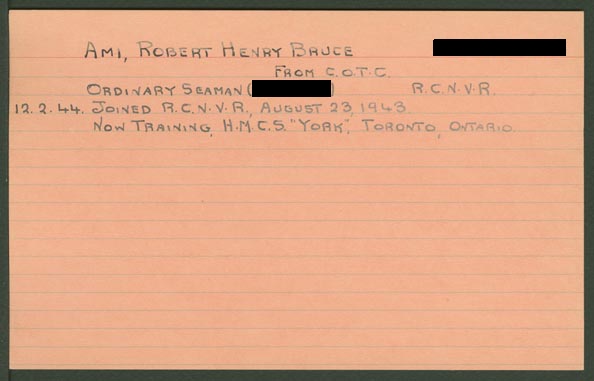 AMI, ROBERT HENRY BRUCE
FROM C.O.T.C.
ORDINARY SEAMAN ( ) R.C.N.V.R.
12.2.44. JOINED R.C.N.V.R., AUGUST 23, 1943.
NOW TRAINING, H.M.C.S. "YORK", TORONTO, ONTARIO.